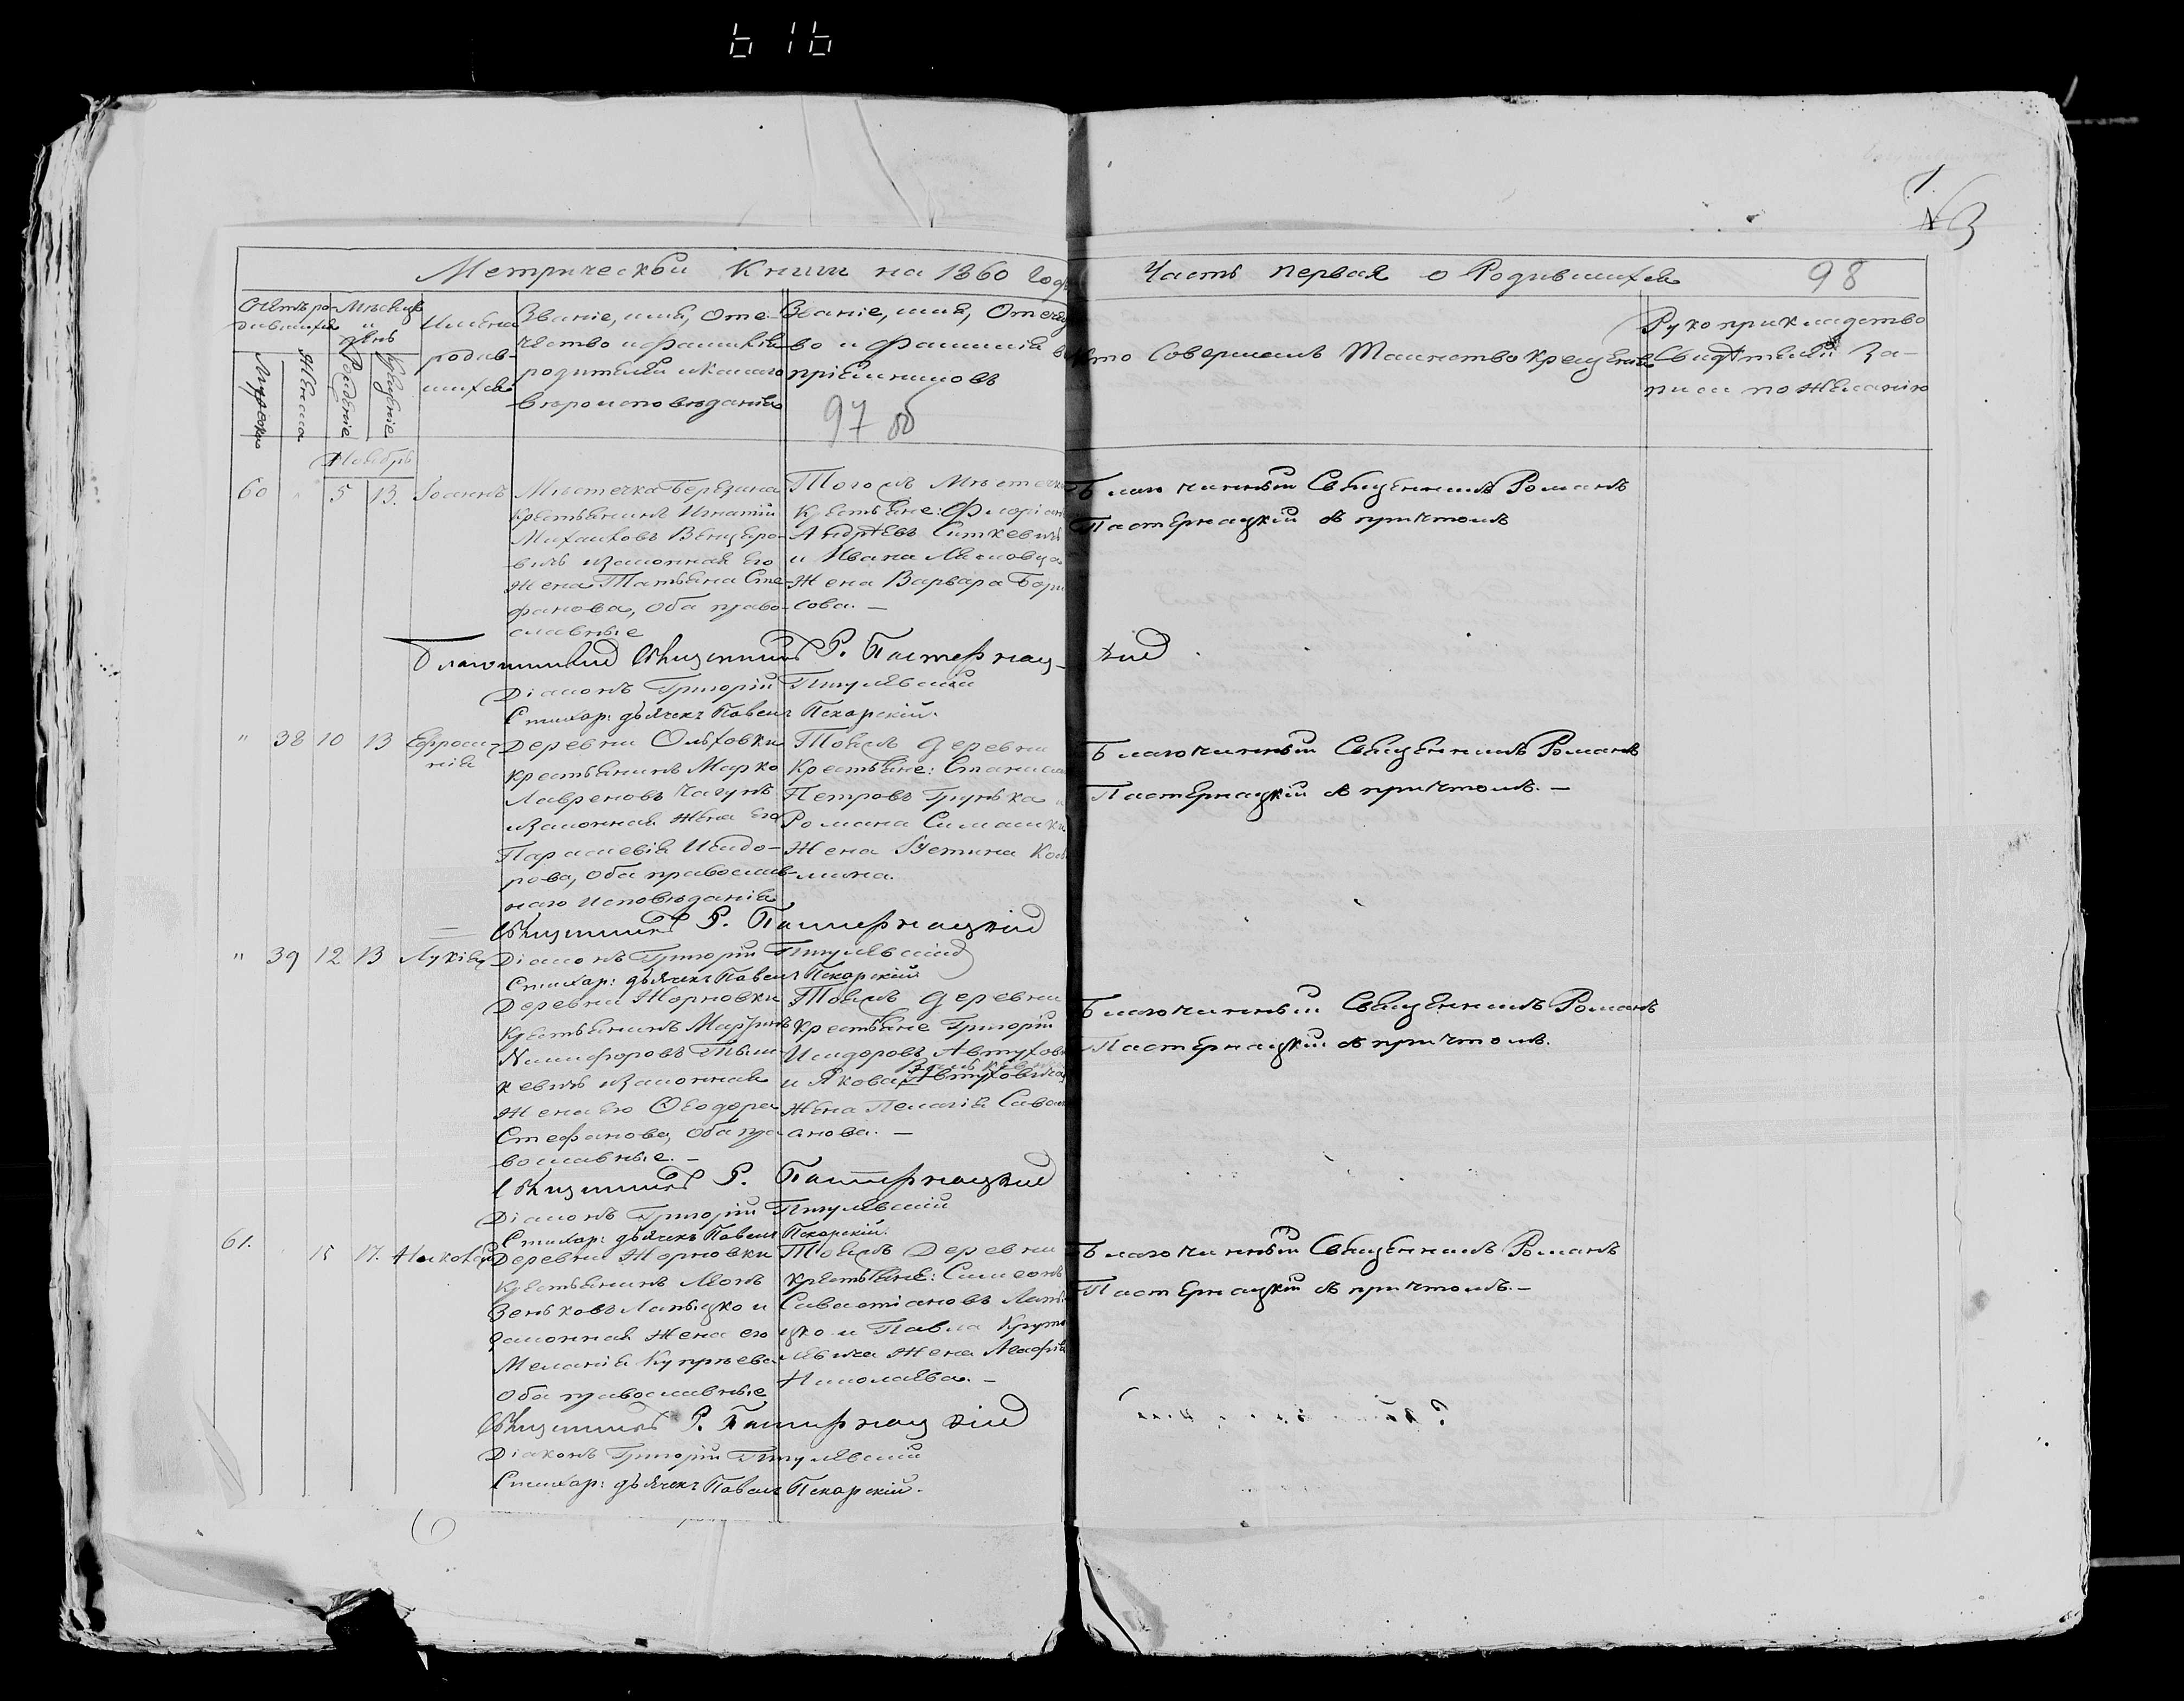 616
1.
№ 3
Метрической Книги на 1860 Годъ
Часть первая о Родившихся
98
Счетъ ро-
дившихся
Мужеска
Женска
Мѣсяцъ
и
день
Рожденіе
Крещеніе
Имена
родив-
шихся
Званіе, имя, Оте-
чество и фамилія
родителей и какого
вѣроисповѣданія
Званіе, имя, Отече
во и фамилія
пріемниковъ
97 об
Кто Совершалъ Таинство Крещенія
Рукоприкладство
Свидѣтелей За-
писи по желанію
Ноябрь
60 " 5 13. Іоаннъ
Мѣстечка Березина
Крестьянинъ Игнатій
Михайловъ Венцеро-
вичъ изаконная Его
Жена Татьяна Сте-
фанова, Оба право-
славные
Тогожъ Мѣстечка
Крестьяне: Флоріанъ
Андрѣевъ Ситкевичъ
и Ивана
Жена Варвара Бори
сова. —
Благочинный Священникъ Романъ
Пастернацкій съ причтомъ
Благочинный Священникъ Р. Пастернац-кій
Діаконъ Григорій
Стихар: дьячекъ Павелъ Пекарскій.
" 38 10 13 Ефроси-
нія
Деревни Ольховки
Крестьянинъ Марко
Лавреновъ Чагунъ
изаконная Жена Его
Параскевія Исидо-
рова, Оба православ-
наго исповѣданія
Тойжъ деревни
Крестьяне: Станислав
Петровъ Грунька и
Романа Симашки
Жена Іустина Косъ
мина.
Благочинный Священникъ Романъ
Пастернацкій съ причтомъ. —
Священникъ Р. Пастернацкій
" 39 12 13 Лукія
Діаконъ Григорій
Стихар: дьячекъ Павелъ Пекарскій
Деревни Жорновки
Крестьянинъ Мартинъ
Никифоровъ
кевичъ изаконная
Жена Его Ѳеодора
Стефанова, Оба пра
вославные. —
Тойжъ деревни
Крестьяне Григорій
Исидоровъ Автухов
и Якова Автуховича
Жена Пелагія Сава
анова. —
Благочинный Священникъ Романъ
Пастернацкій съ причтомъ.
Священникъ Р. Пастернацкій
Діаконъ Григорій
Стихар: дьячекъ Павелъ Пекарскій.
61. 15 17. Николай
Деревни Жорновки
Крестьянинъ Леонъ
Зеньковъ Лапыцко и
законная Жена его
Меланія Купріева
Оба православные
Тойжъ Деревни
крестьяне: Симеонъ
Савастіановъ Лапы
цко и Павла Крути
левича Жена Агафія
Николаева. —
Благочинный Священникъ Романъ
Пастернацкій съ причтомъ. —
Священникъ Р. Пастернацкій
Діаконъ Григорій
Стихар: дьячекъ Павелъ Пекарскій.